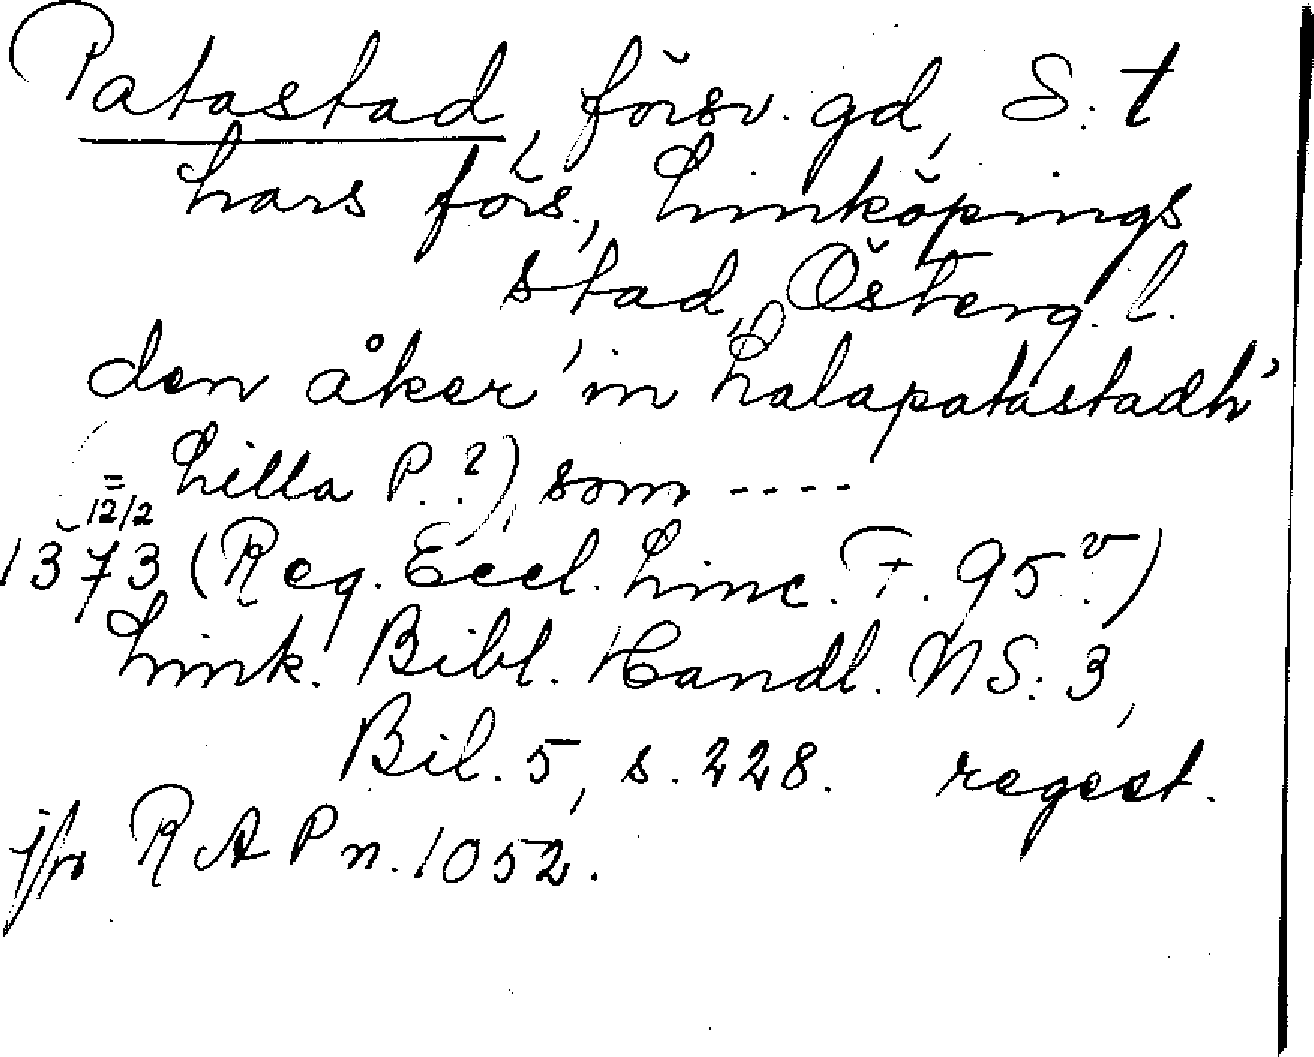 Patastad, försv. gd, S:t
Lars förs., Linköpings
stad, Österg. l.
den åker 'in Lalapatastadh'
(= Lilla P.?), som ----
12/2
1373 (Reg. Eccl. Linc. F. 95v.)
Link. Bibl. Handl. NS: 3,
Bil. 5, s. 228. regest.
jfr RAP n. 1052.